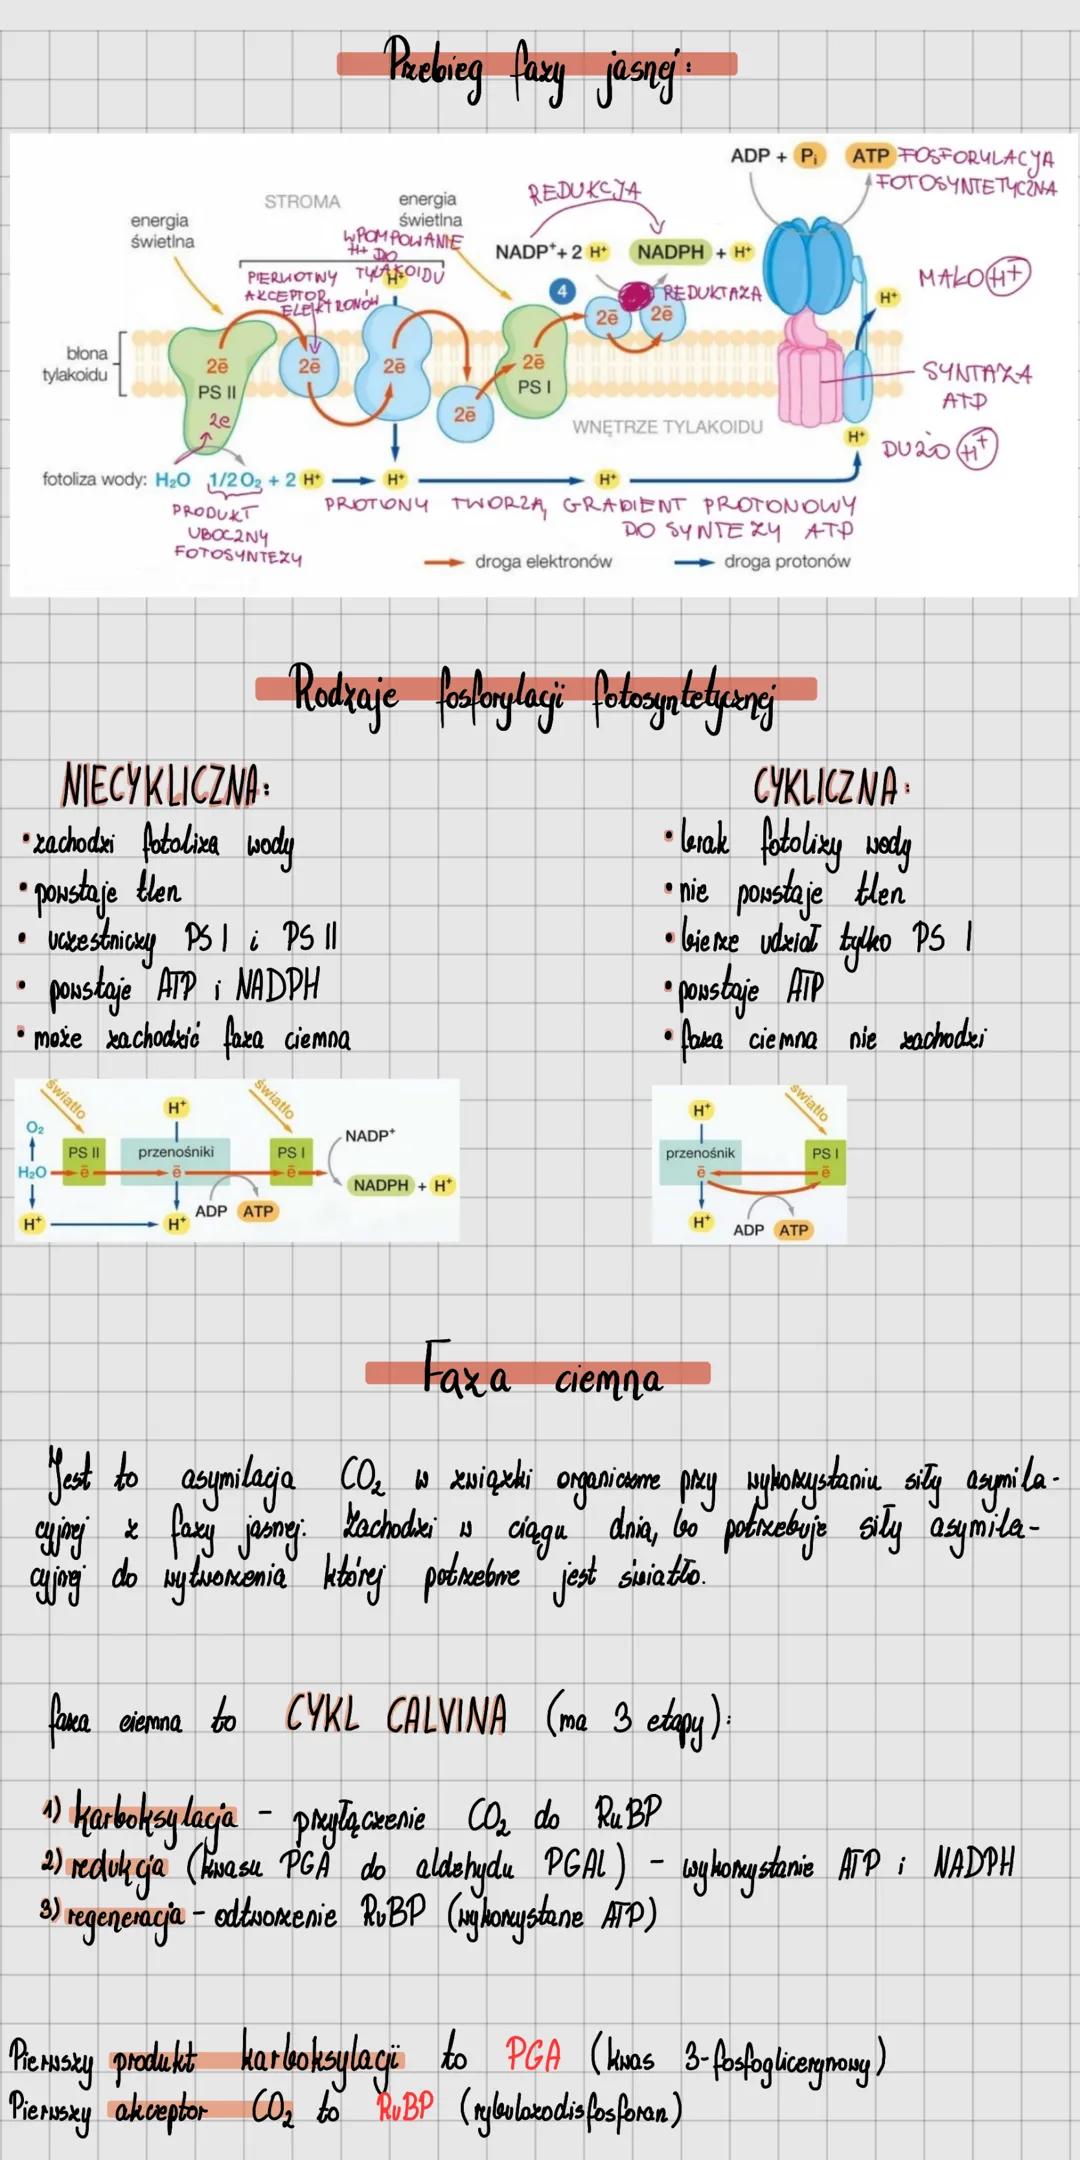 Przebieg fazy jasnej:
ADP + Pi ATP FOSFORYLACJA
FOTOSYNTETYCZNA
STROMA
energia
świetlna
energia
świetlna
REDUKCJA
WPOMPOWANIE
H+ DO
TYLAKOIDU
NADP⁺ + 2 H⁺ NADPH + H⁺
PIERWOTNY
AKCEPTOR
ELEKTRONÓW
H⁺
4
REDUKTAZA
MAŁO H+
H⁺
błona
tylakoidu
2ē
PS II
2e
2ē
2ē
2ē
2ē
PS I
2ē
2ē
SYNTAZA
ATP
WNĘTRZE TYLAKOIDU
H⁺
DUŻO H+
fotoliza wody: H₂O 1/2 O₂ + 2 H⁺ H⁺ H⁺
PRODUKT
UBOCZNY
FOTOSYNTEZY
PROTONY TWORZĄ GRADIENT PROTONOWY
DO SYNTEZY ATP
droga elektronów droga protonów
Rodzaje fosforylacji fotosyntetycznej
NIECYKLICZNA:
• zachodzi fotoliza wody
• powstaje tlen
• uczestniczy PS I i PS II
• powstaje ATP i NADPH
• może zachodzić faza ciemna
światło
światło
O₂
H⁺
NADP⁺
PS II
przenośniki
PS I
H₂O ē ē ē
NADPH + H⁺
ADP ATP
H⁺ H⁺
CYKLICZNA:
• brak fotolizy wody
• nie powstaje tlen
• bierze udział tylko PS I
• powstaje ATP
• faza ciemna nie zachodzi
światło
H⁺
przenośnik
PS I
ē ē
H⁺
ADP ATP
Faza ciemna
Jest to asymilacja CO₂ w związki organiczne przy wykorzystaniu siły asymila-
cyjnej z fazy jasnej. Zachodzi w ciągu dnia, bo potrzebuje siły asymila-
cyjnej do wytworzenia której potrzebne jest światło.
faza ciemna to CYKL CALVINA (ma 3 etapy):
1) karboksylacja - przyłączenie CO₂ do RuBP
2) redukcja (kwasu PGA do aldehydu PGAL) - wykorzystanie ATP i NADPH
3) regeneracja - odtworzenie RuBP (wykorzystane ATP)
Pierwszy produkt karboksylacji to PGA (kwas 3-fosfoglicerynowy)
Pierwszy akceptor CO₂ to RuBP (rybulozodisfosforan)